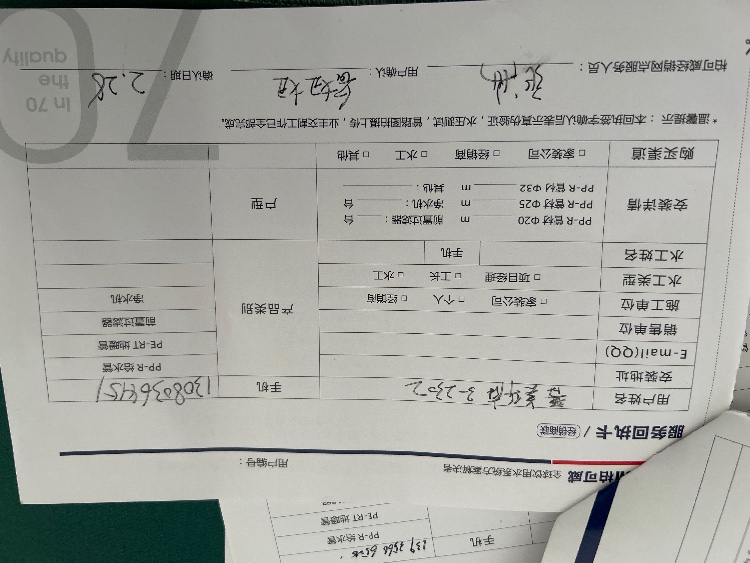 柏可威 全球饮用水系统方案解决者 用户编号：
服务回执卡 / 经销商联
用户姓名 3-2302 手机 13080364451
安装地址
E-mail(QQ)
销售单位
施工单位 □ 家装公司 □ 个人 □ 经销商
水工类型 □ 项目经理 □ 工长 □ 水工
水工姓名 手机
产品类别
PP-R 给水管
PE-RT 地暖管
前置过滤器
净水机
安装详情
PP-R 管材 Φ20 m 前置过滤器： 台
PP-R 管材 Φ25 m 净水机： 台
PP-R 管材 Φ32 m 其他：
户型
购买渠道 □ 家装公司 □ 经销商 □ 水工 □ 其他
* 温馨提示：本回执签字确认后表示真伪验证，水压测试，管路图拍摄上传，业主交割工作已全部完成。
柏可威经销网点服务人员： 用户确认： 确认日期： 2.28
In 70
the
quality
70
手机 139 2566
PP-R 给水管
PE-RT 地暖管